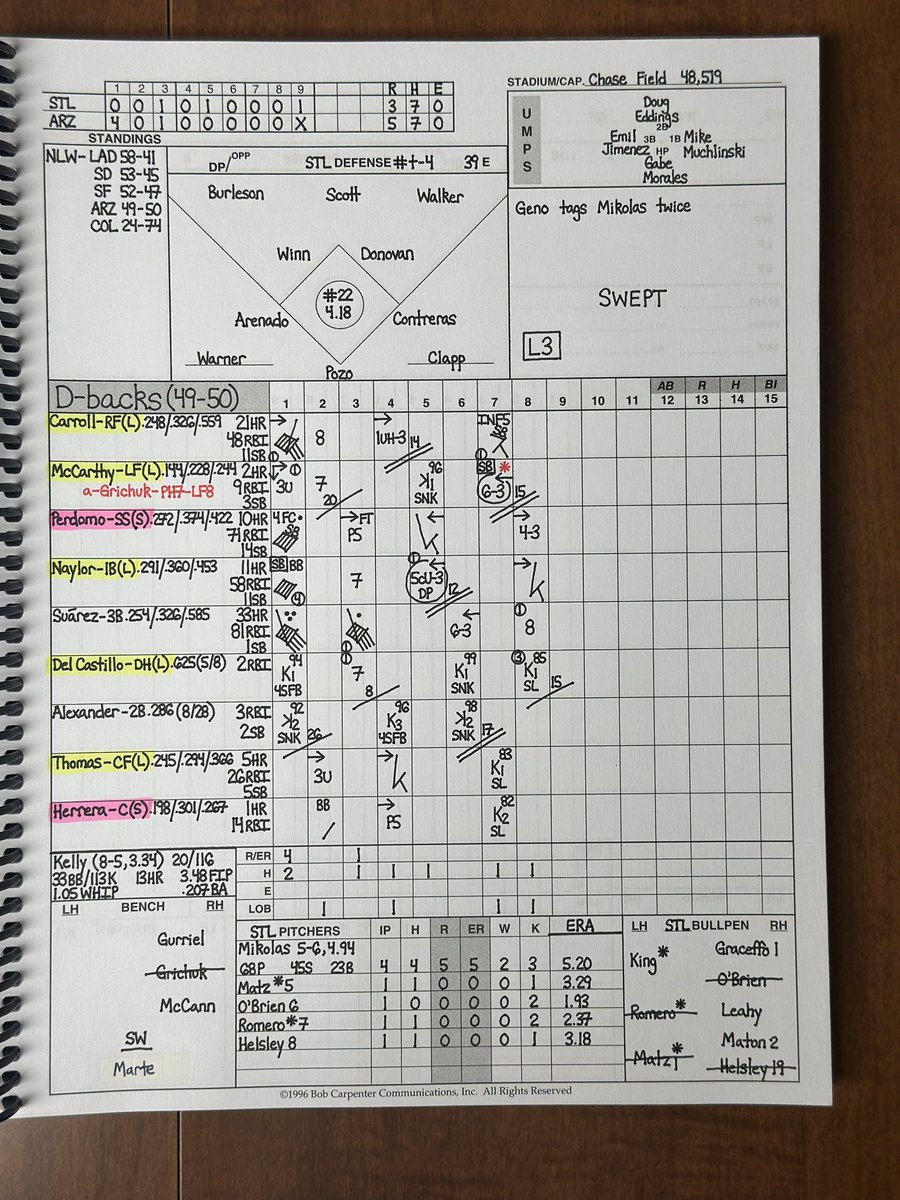 STADIUM/CAP. Chase Field 48,519
1 2 3 4 5 6 7 8 9 R H E
STL 0 0 1 0 1 0 0 0 1 3 7 0
ARZ 4 0 1 0 0 0 0 0 X 5 7 0
STANDINGS
NLW- LAD 58-41
SD 53-45
SF 52-47
ARZ 49-50
COL 24-74
DP/OPP STL DEFENSE #+-4 39 E
Burleson Scott Walker
Winn Donovan
#22
4.18
Arenado Contreras
Warner Clapp
Pozo
UMPS
Doug
Eddings
2B
Emil 3B 1B Mike
Jimenez HP Muchlinski
Gabe
Morales
Geno tags Mikolas twice
SWEPT
L3
D-backs (49-50) 1 2 3 4 5 6 7 8 9 10 11 AB 12 R 13 H 14 BI 15
Carroll-RF(L) .248/.326/.559 21HR
48RBI 8 1UH-3 14 INF5
11SB
McCarthy-LF(L) .144/.228/.244 2HR SB *
a-Grichuk-PH7-LF8 9RBI 3U 7 K1 96 G-3 15
3SB 20 SNK
Perdomo-SS(S) .272/.374/.422 10HR 4FC FT
71RBI SB P5 K 4-3
14SB
Naylor-1B(L) .291/.360/.453 11HR SB BB
58RBI 7 5CU-3 K
11SB 4 DP 12
Suárez-3B .254/.326/.585 33HR
81RBI 6-3 8
1SB
Del Castillo-DH(L) .625(5/8) 2RBI 94 99 3 85
K1 7 K1 K1
4SFB 8 SNK SL 15
Alexander-2B .286 (8/28) 3RBI 92 96 98
2SB K2 K3 K2
SNK 26 4SFB SNK 17
Thomas-CF(L) .245/.294/.366 5HR 83
26RBI 3U K K1
5SB SL
Herrera-C(S) .198/.301/.267 1HR BB 82
14RBI P5 K2
SL
Kelly (8-5, 3.34) 20/116
33BB/113K 13HR 3.48 FIP
1.05 WHIP .207 BA
R/ER 4 1
H 2 1 1 1 1 1
E
LOB 1 1 1 1
LH BENCH RH
Gurriel
Grichuk
McCann
SW
Marte
STL PITCHERS IP H R ER W K ERA
Mikolas 5-6, 4.94
68P 45S 23B 4 4 5 5 2 3 5.20
Matz *5 1 1 0 0 0 1 3.29
O'Brien 6 1 0 0 0 0 2 1.93
Romero*7 1 1 0 0 0 2 2.37
Helsley 8 1 1 0 0 0 1 3.18
LH STL BULLPEN RH
King* Graceffo 1
O'Brien
Romero* Leahy
Maton 2
Matz 1* Helsley 19
©1996 Bob Carpenter Communications, Inc. All Rights Reserved